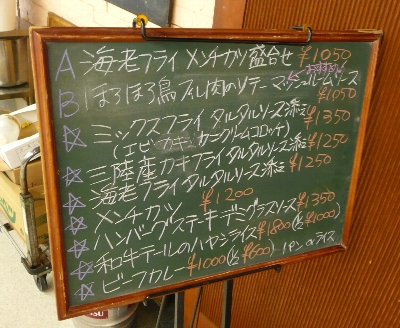 A 海老フライ メンチカツ盛合せ ¥1050
B ほろほろ鳥モモ肉のソテー マッシュルームソース おすすめ! ¥1050
☆ ミックスフライ タルタルソース添え ¥1350
(エビ カキ カニクリームコロッケ)
☆ 三陸産カキフライタルタルソース添え ¥1250
☆ 海老フライタルタルソース添え ¥1250
☆ メンチカツ ¥1200
☆ ハンバーグステーキデミグラスソース ¥1350
☆ 和牛テールのハヤシライス ¥1800 (½ ¥1000)
☆ ビーフカレー ¥1000 (½ ¥600) パン or ライス